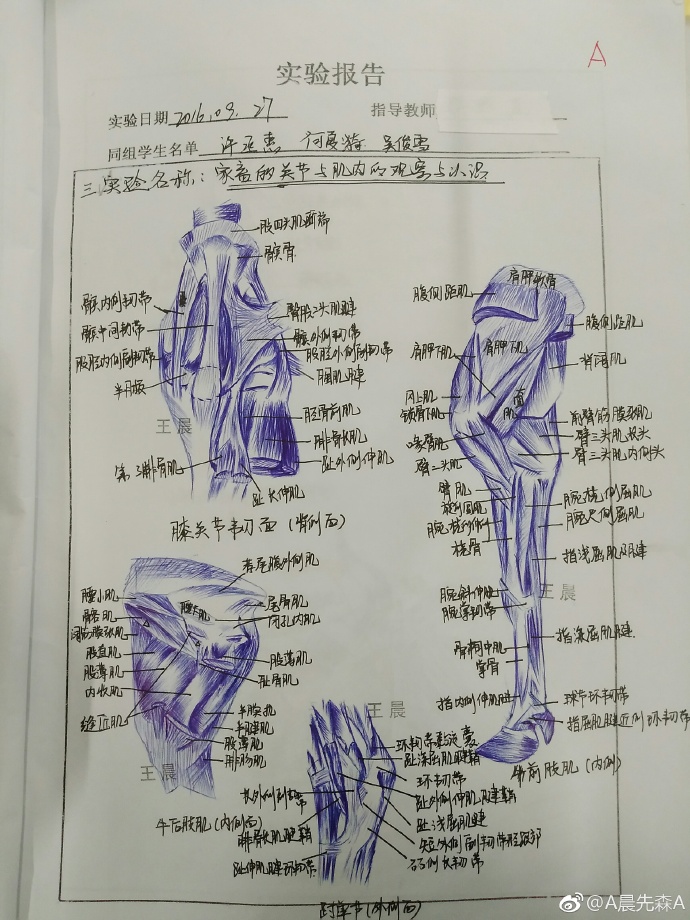 A
实验报告
实验日期 2016.09.27 指导教师
同组学生名单
三.实验名称：家畜的关节与肌肉的观察与认识
股四头肌断端
髌骨
髌内侧韧带
髌中间韧带
股胫内侧副韧带
半月板
臀股二头肌腱
髌外侧韧带
股胫外侧副韧带
腘肌腱
胫骨前肌
腓骨长肌
趾外侧伸肌
第三腓骨肌
趾长伸肌
王晨
膝关节韧面（背侧面）
肩胛软骨
腹侧锯肌
腹侧锯肌
肩胛下肌
肩胛下肌
背阔肌
冈上肌
锁骨下肌
前臂筋膜张肌
喙臂肌
臂三头肌长头
臂三头肌内侧头
臂二头肌
臂肌
桡骨
腕桡侧屈肌
腕尺侧屈肌
指浅屈肌及腱
腕斜伸肌
王晨
骨间中肌
掌骨
指深屈肌腱
指内侧伸肌腱
球节环韧带
指屈肌腱近侧环韧带
牛前肢肌（内侧）
荐尾腹外侧肌
腰小肌
髂肌
腰大肌
尾骨肌
闭孔内肌
阔筋膜张肌
股直肌
股薄肌
内收肌
缝匠肌
股薄肌
耻骨肌
半膜肌
半腱肌
股薄肌
腓肠肌
王晨
牛后肢肌（内侧面）
王晨
趾深屈肌腱鞘
环韧带
趾外侧伸肌腱鞘
趾浅屈肌腱
长外侧副韧带
腓骨长肌腱鞘
趾伸肌腱环韧带
跗关节（外侧面）
@A晨先森A